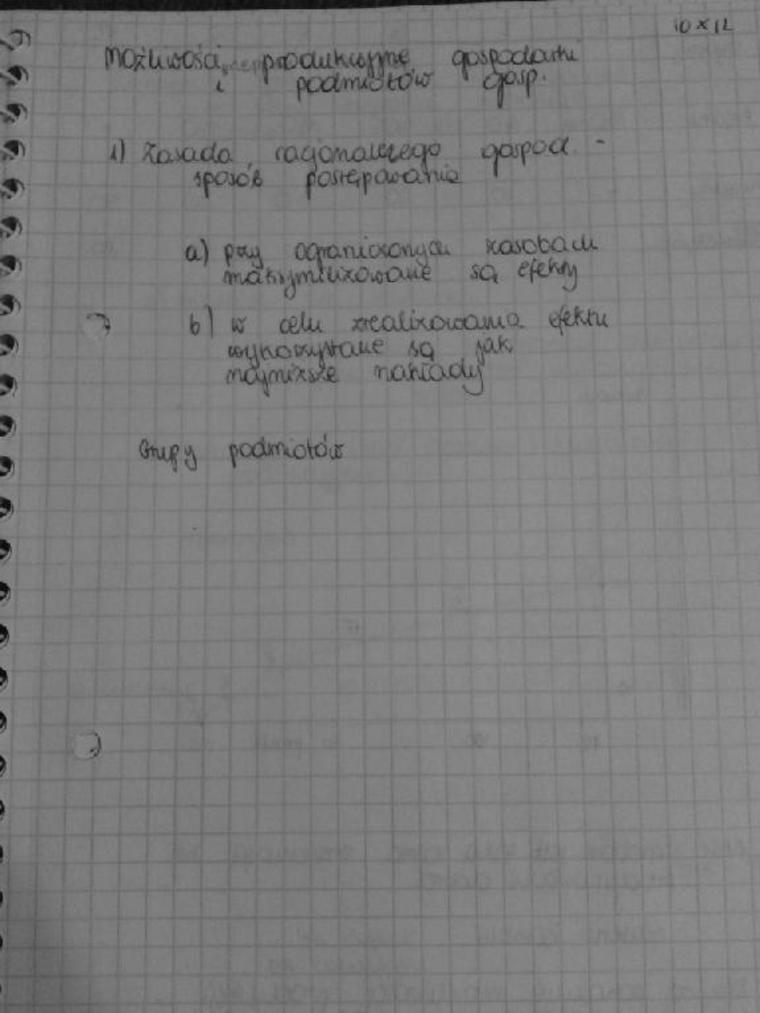 10 X 12
Możliwości produkcyjne gospodarki
i podmiotów gosp.
1) Zasada racjonalnego gospod. -
sposób postępowania
a) przy ograniczonych zasobach
maksymilizowane są efekty
b) w celu zrealizowania efektu
wykorzystane są jak
najniższe nakłady
Grupy podmiotów